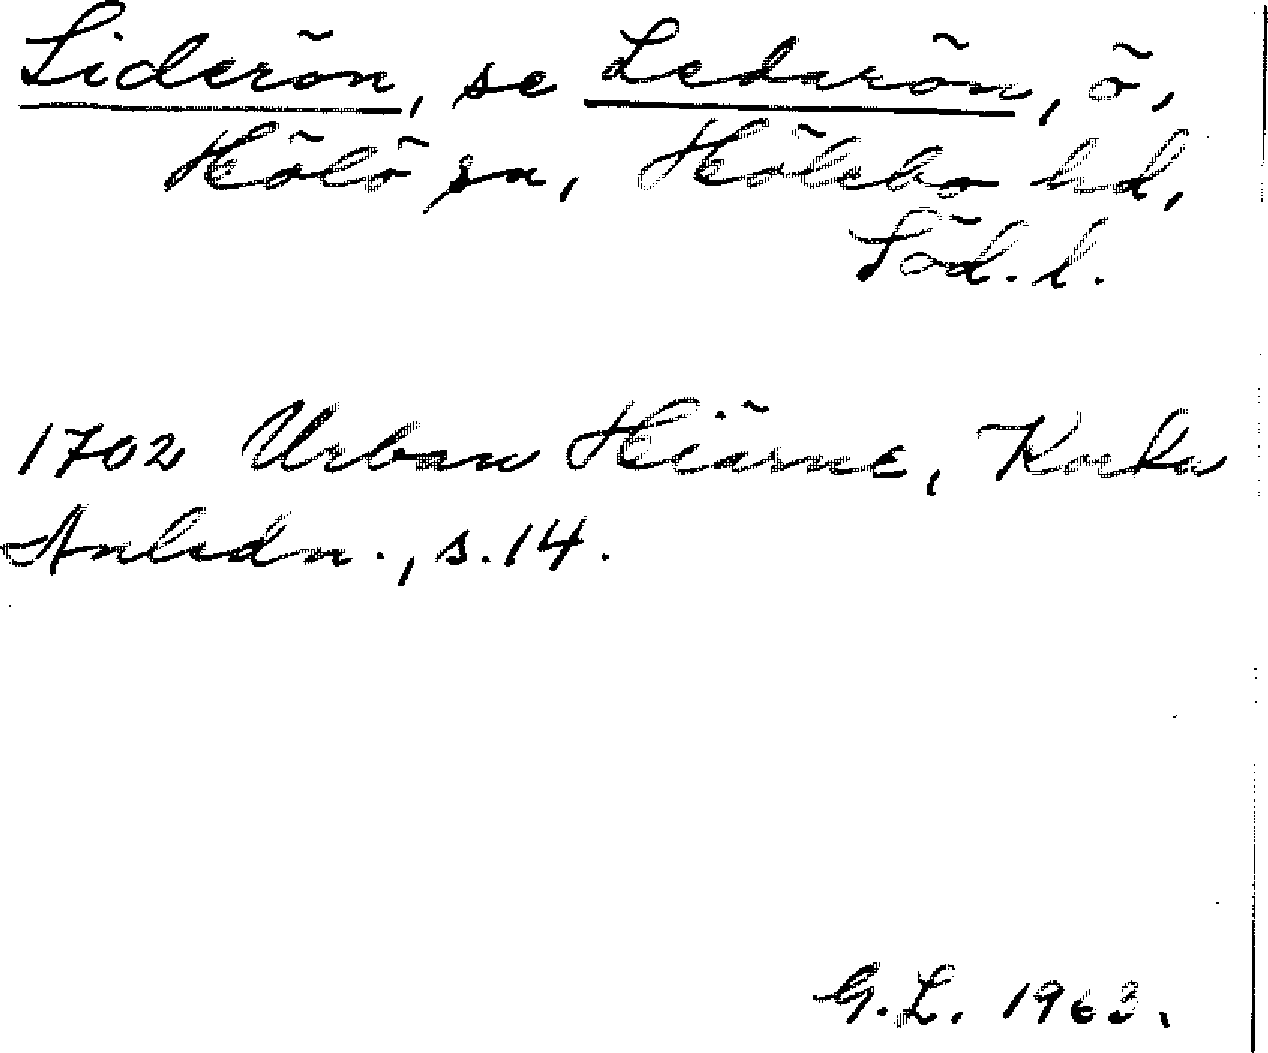 Liderön, se Ledarön, ö,
Hölö sn, Hölebo hd,
Söd. l.
1702 Urban Hiärne, Korta
Anledn., s. 14.
G. L. 1963.